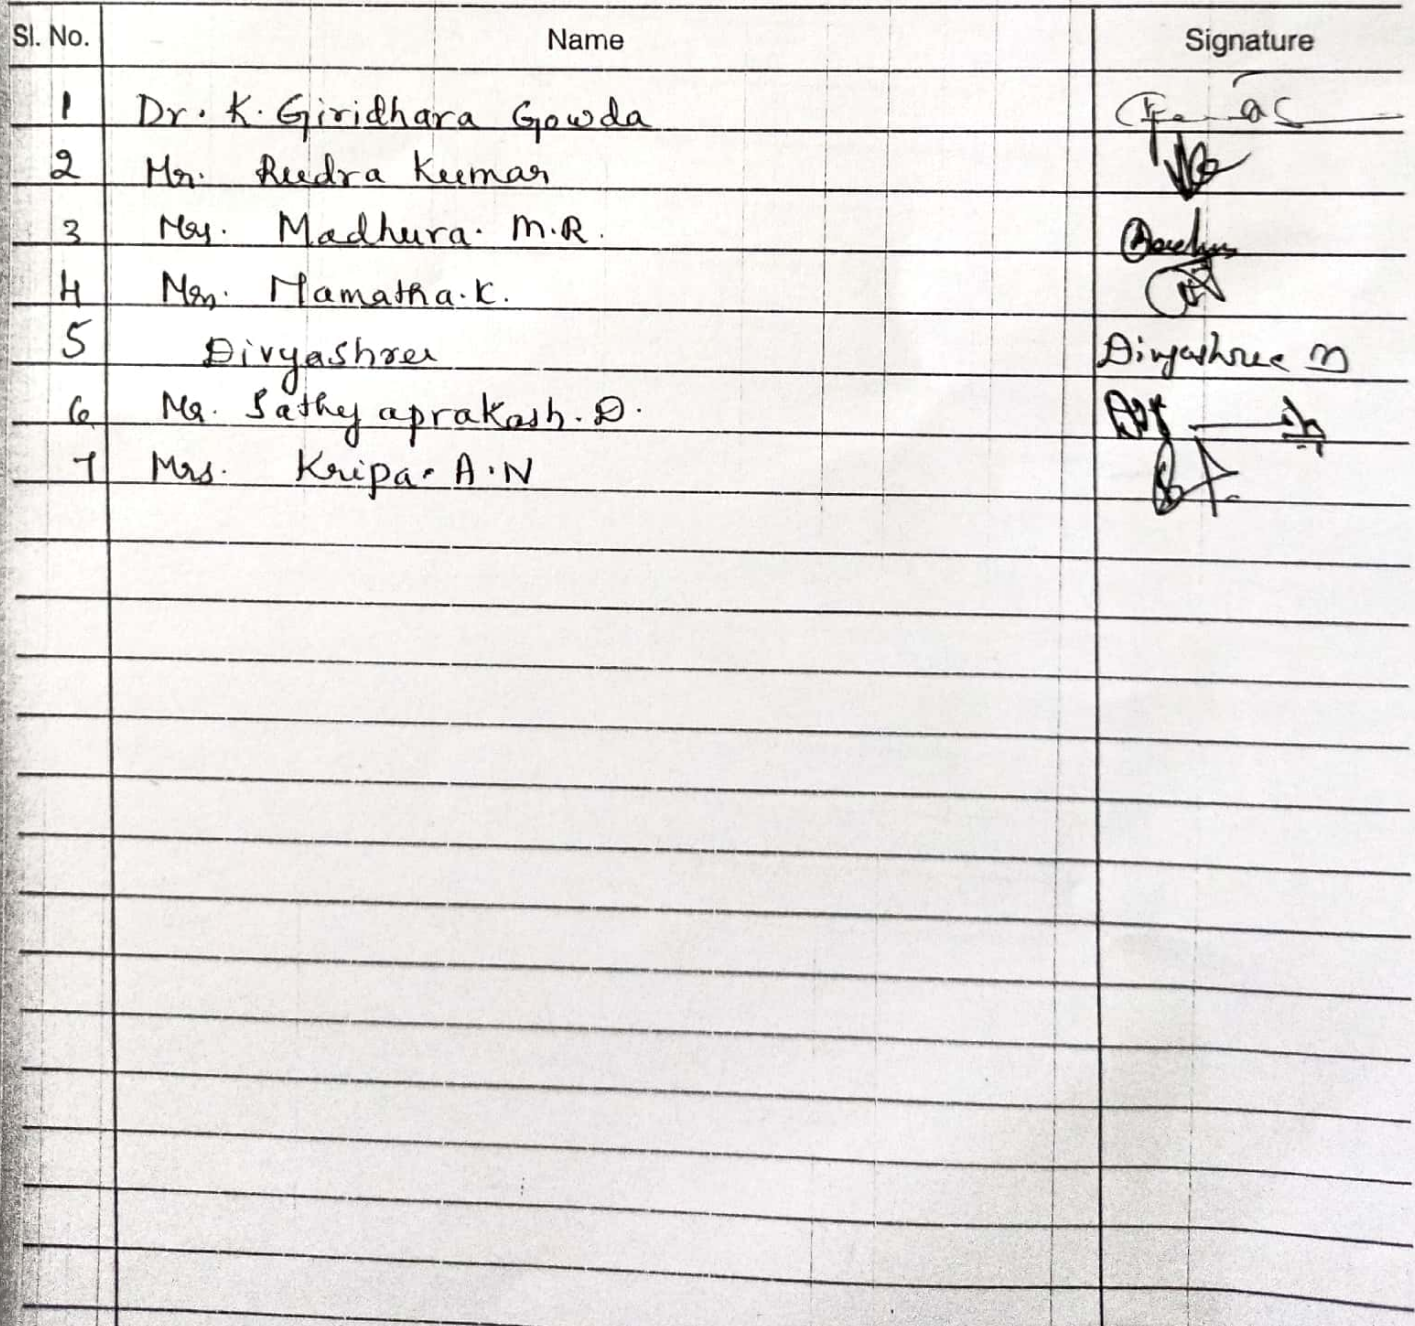 Sl. No. Name Signature
1 Dr. K. Giridhara Gowda
2 Mr. Rudra Kumar
3 Mrs. Madhura. M.R.
4 Mrs. Mamatha.K.
5 Divyashree Divyashree
6 Mr. Sathyaprakash. D.
7 Mrs. Kripa. A.N